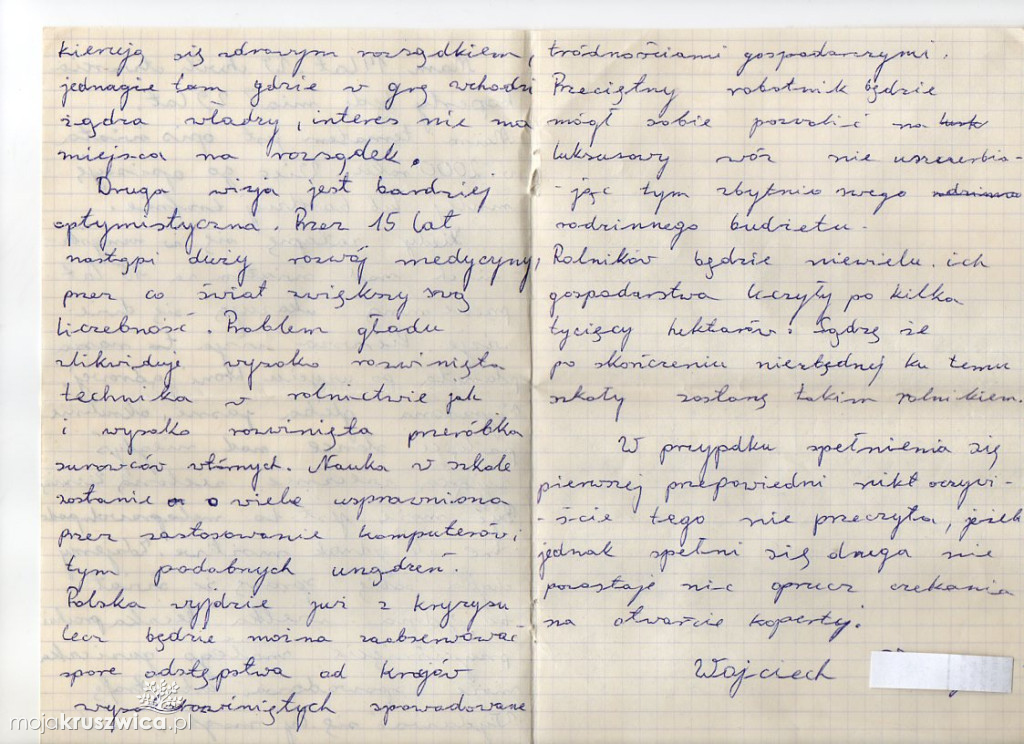 kierują się zdrowym rozsądkiem,
jednagże tam gdzie w grę wchodzi
żądza władzy, interes nie ma
miejsca na rozsądek.
Druga wizja jest bardziej
optymistyczna. Przez 15 lat
nastąpi duży rozwój medycyny,
przez co świat zwiększy swą
liczebność. Problem głodu
zlikwiduje wysoko rozwinięta
technika w rolnictwie jak
i wysoko rozwinięta przeróbka
surowców wtórnych. Nauka w szkole
zostanie o wiele usprawniona
przez zastosowanie komputerów i
tym podobnych urządzeń.
Polska wyjdzie już z kryzysu
lecz będzie można zaobserwować
spore odstępstwa od krajów
wyso rozwiniętych spowodowane
tródnościami gospodarczymi.
Przeciętny robotnik będzie
mógł sobie pozwolić na
luksusowy wóz nie uszczerbia-
-jąc tym zbytnio swego
rodzinnego budżetu.
Rolników będzie niewielu. ich
gospodarstwa liczyły po kilka
tycięcy hektarów. Sądzę że
po skończeniu niezbędnej ku temu
szkoły zostanę takim rolnikiem.
W przypdku spełnienia się
pierwszej przepowiedni nikt oczywi-
-ście tego nie przeczyta, jeżeli
jednak spełni się druga nie
pozostaje nic oprucz czekania
na otwarcie koperty.
Wojciech
mojakruszwica.pl